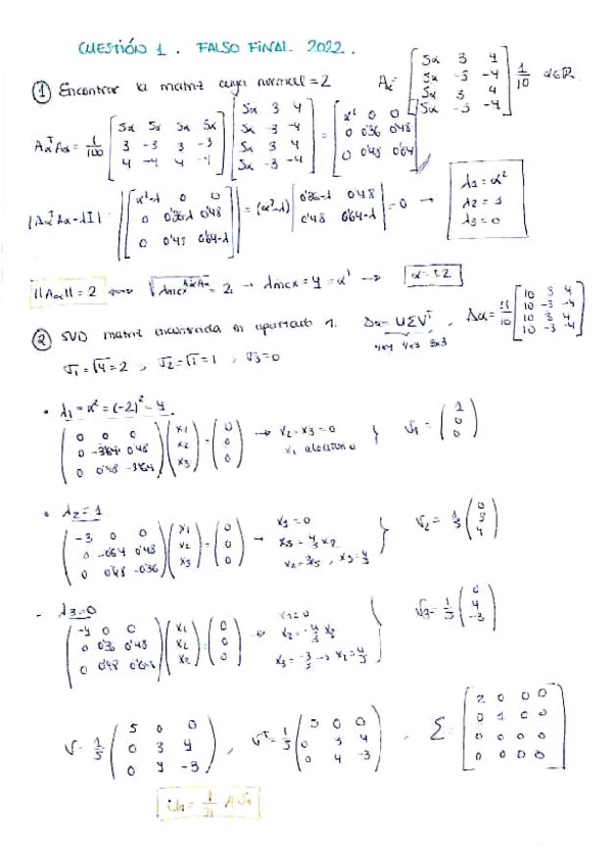 CUESTIÓN 1. FALSO FINAL 2022.
① Encontrar la matriz cuya normal = 2   Aα = [5α 3 4; 5α -3 -4; 5α 3 4; 5α -3 -4] 1/10   α∈ℝ
AαᵀAα = 1/100 [5α 5α 5α 5α; 3 -3 3 -3; 4 -4 4 -4] [5α 3 4; 5α -3 -4; 5α 3 4; 5α -3 -4] = [α² 0 0; 0 0'36 0'48; 0 0'48 0'64]
|AαᵀAα - λI| = |[α²-λ 0 0; 0 0'36-λ 0'48; 0 0'48 0'64-λ]| = (α²-λ) |0'36-λ 0'48; 0'48 0'64-λ| = 0 → λ₁ = α² λ₂ = 1 λ₃ = 0
||Aα|| = 2 ⟺ = 2 → λmax = 4 = α² → α = ±2
② SVD matriz encontrada en apartado 1. = UΣVᵀ, [10 3 4; 10 -3 -4; 10 3 4; 10 -3 -4]
4x4 4x3 3x3
σ₁ = √4 = 2, σ₂ = √1 = 1, σ₃ = 0
· λ₁ = α² = (-2)² = 4.
(0 0 0; 0 -3'64 0'48; 0 0'48 -3'64) (x₁; x₂; x₃) = (0; 0; 0) → x₂ = x₃ = 0 x₁ aleatorio } v₁ = (1; 0; 0)
· λ₂ = 1
(-3 0 0; 0 -0'64 0'48; 0 0'48 -0'36) (x₁; x₂; x₃) = (0; 0; 0) → x₁ = 0 x₃ = 4/3 x₂ x₂ = 3/5, x₃ = 4/5 } v₂ = 1/5 (0; 3; 4)
- λ₃ = 0
(-4 0 0; 0 0'36 0'48; 0 0'48 0'64) (x₁; x₂; x₂) = (0; 0; 0) x₁ = 0 x₂ = -4/3 x₃ x₃ = -3/5 → x₂ = 4/5 } v₃ = 1/5 (0; 4; -3)
V = 1/5 (5 0 0; 0 3 4; 0 4 -3), Vᵀ = 1/5 (5 0 0; 0 3 4; 0 4 -3), Σ = [2 0 0 0; 0 1 0 0; 0 0 0 0; 0 0 0 0]